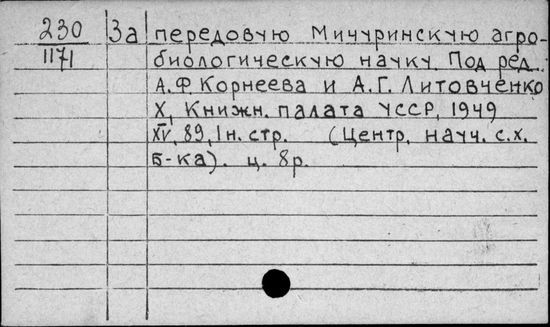 230 За передовую Мичуринскую агро-
1171 биологическую науку. Под ред.
А.Ф Корнеева и А.Г. Литовченко
Х, Книжн. палата УССР, 1949
XV, 89, 1н. стр. (Центр. науч. с.х.
Б-ка). ц. 8р.